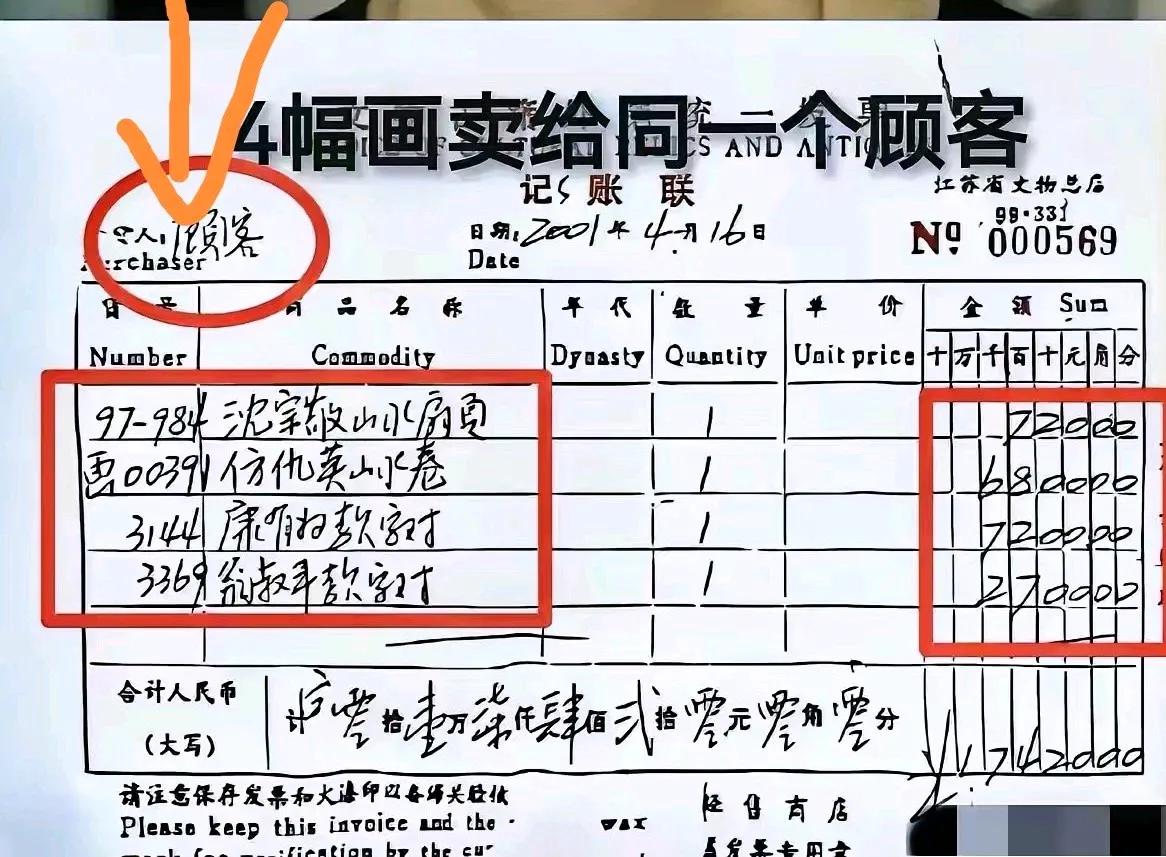 4幅画卖给同一个顾客
CS AND ANTIC
记 账 联
江苏省文物总店
99·331
人: 顾客
日期: 2001年 4月 16日
Nº 000569
Purchaser
Date
商 品 名 称 年 代 数 量 单 价 金 额 Sum
Number Commodity Dynasty Quantity Unit price 十 万 千 百 十 元 角 分
97-984 沈宗敬山水扇页 1 72000
画00391 仿仇英山水卷 1 680000
3144 康有为款字对 1 720000
3369 翁叔平款字对 1 270000
合计人民币
(大写)
计 零拾壹万柒仟肆佰贰拾零元零角零分
¥1742000
请注意保存发票和火漆印以备
Please keep this invoice and the
wax
经售商店
发票专用章